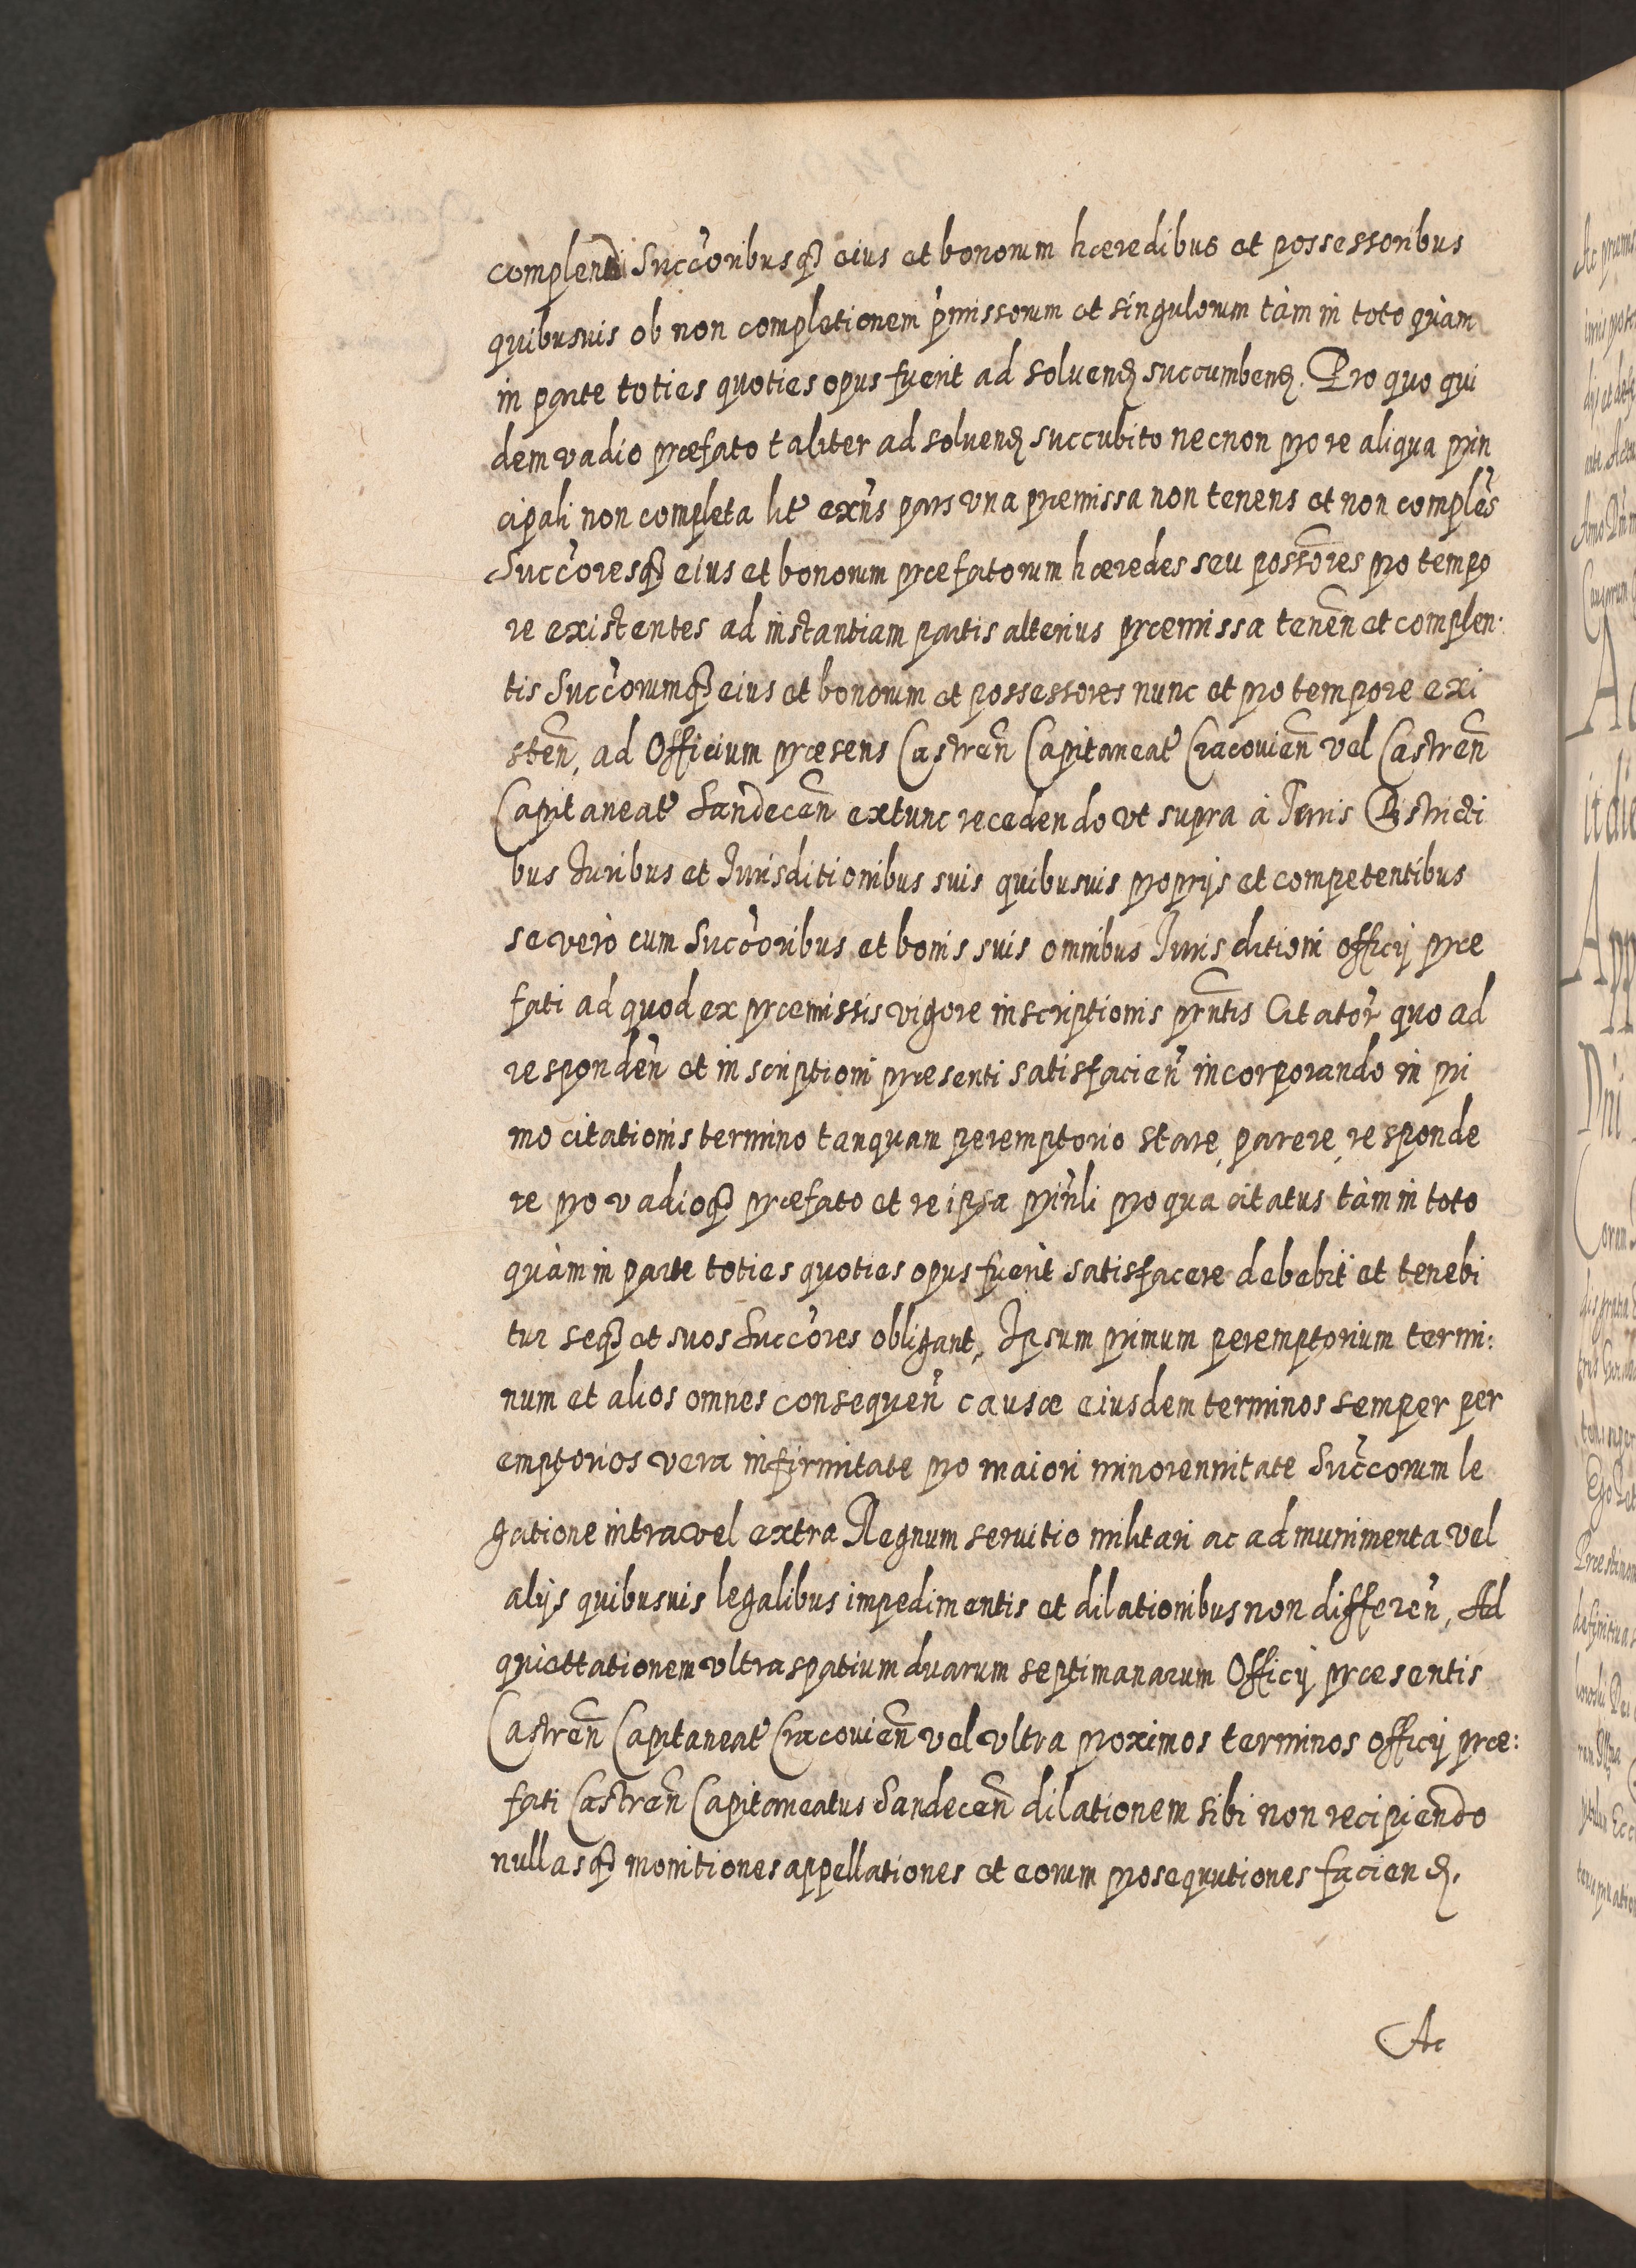 complendi Succ'oribusq3 eius et bonorum hæredibus et possessoribus
quibusuis ob non completionem p'missorum et singulorum tàm in toto quàm
in parte toties quoties opus fuerit ad soluend succumbend. Pro quo qui
dem vadio præfato taliter ad soluend succubito necnon pro re aliqua prin
cipali non completa ht' exn's pars vna premissa non tenens et non comple's
Succ'oresq3 eius et bonorum præfatorum hæredes seu possõres pro tempo
re existentes ad instantiam partis alterius præmissa teneñ et complen:
tis Succ'orumq3 eius et bonorum et possessores nunc et pro tempore exi
steñ, ad Officium præsens Castreñ Capitaneat' Cracouieñ vel Castreñ
Capitaneat' Sandeceñ extunc recedendo vt supra à Terris Districti
bus Iuribus et Iurisditionibus suis quibusuis proprijs et competentibus
se verò cum Succ'oribus et bonis suis omnibus Iurisditioni officij præ
fati ad quod ex præmissis vigore inscriptionis prñtis Citator' quo ad
responden' et inscriptioni præsenti satisfacien' incorporando in pri
mo citationis termino tanquam peremptorio stare, parere, responde
re pro vadioq3 præfato et re ipsa prin'li pro qua citatus tàm in toto
quàm in parte toties quoties opus fuerit satisfacere debebit et tenebi
tur seq3 et suos Succ'ores obligant, Ipsum primum peremptorium termi:
num et alios omnes consequen' causæ eiusdem terminos semper per
emptorios vera infirmitate pro maiori minorennitate Succ'orum le
gatione intra vel extra Regnum seruitio militari ac ad munimenta vel
alijs quibusuis legalibus impedimentis et dilationibus non differen', Ad
quiettationem vltra spatium duarum septimanarum Officij præsentis
Castreñ Capitaneat' Cracouieñ vel vltra proximos terminos officij præ:
fati Castreñ Capitaneatus Sandeceñ dilationem sibi non recipiendo
nullasq3 monitiones appellationes et eorum prosequutiones faciend.
Ac